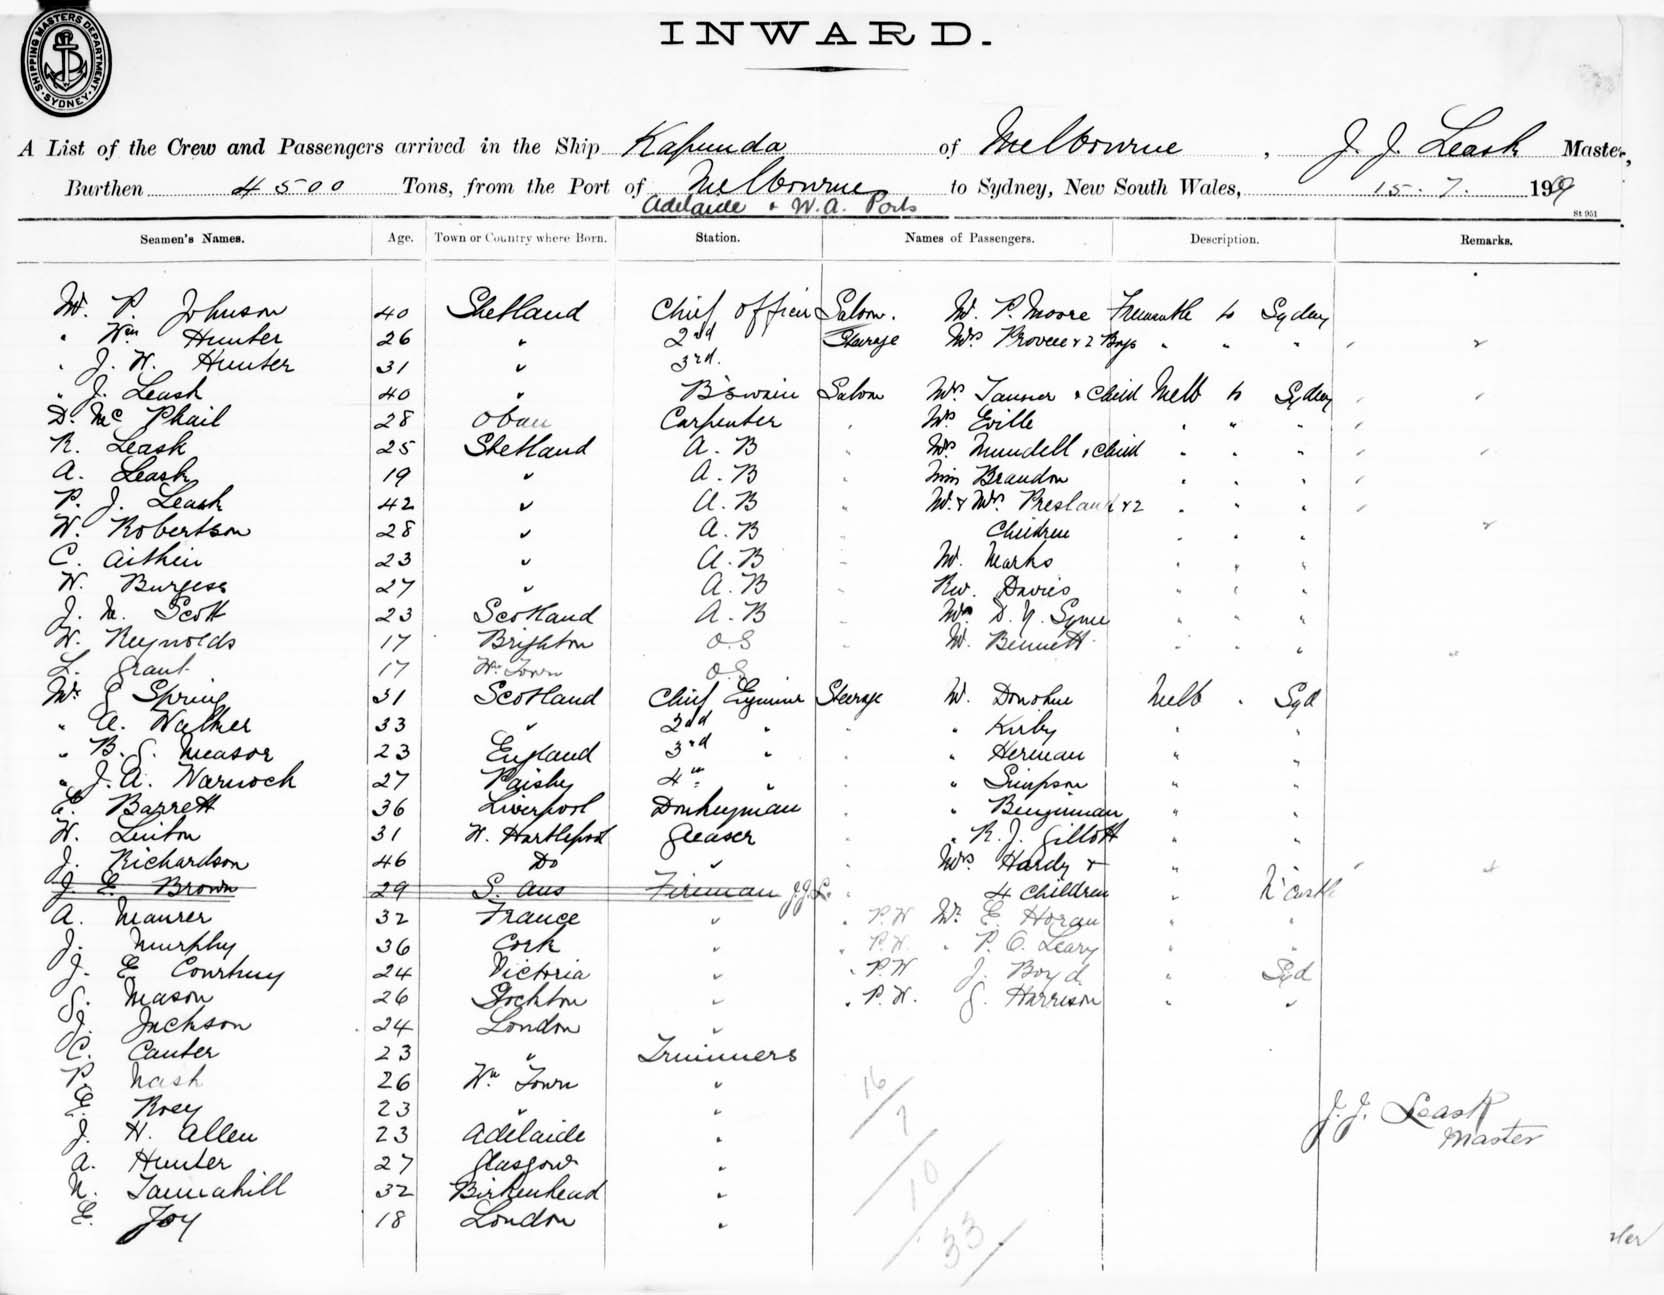 SHIPPING MASTERS DEPARTMENT. SYDNEY
INWARD.
A List of the Crew and Passengers arrived in the Ship Kapunda of Melbourne, J. J. Leask Master,
Burthen 4500 Tons, from the Port of Melbourne to Sydney, New South Wales, 15.7. 190
Adelaide & W.A. Ports
St 951
Seamen's Names. Age. Town or Country where Born. Station. Names of Passengers. Description. Remarks.
Mr. P. Johnson 40 Shetland Chief Officer Saloon. Mr. P. Moore Fremantle to Sydney
" Wm Hunter 26 " 2nd Steerage Mrs & 2 Boys " " "
" J. W. Hunter 31 " 3rd.
" J. Leask 40 " B'swain Saloon Mrs. Tanner & Child Melb to Sydney
D. Mc Phail 28 Oban Carpenter " Mrs Eville " " "
R. Leask 25 Shetland A. B " Mrs. Mundell & Child " " "
A. Leask 19 " A. B " Miss Brandon " " "
P. J. Leask 42 " A. B " Mr. & Mrs. & 2 " " "
W. Robertson 28 " A. B " Children " " "
C. Aitkin 23 " A. B " Mr. Marks " " "
W. Burgess 27 " A. B " Rev. Davies " " "
J. M. Scott 23 Scotland A. B " D. Y. Syme " " "
W. Reynolds 17 Brighton O.S " Mr. Bennett " " "
L. Grant 17 Wm Town O.S
Mr. G Spring 31 Scotland Chief Engineer Steerage Mr. Donohue Melb " Syd
" A. Walker 33 " 2nd " " " Kirby " "
" B. G. Measor 23 England 3rd " " " Herman " "
" J. A. Warnock 27 Paisley 4th " " " Simpson " "
E. Barrett 36 Liverpool Donkeyman " " " "
W. Linton 31 W. Hartlepool Greaser " " R. J. Gillott " "
J. Richardson 46 Do " " Mrs Hardy & "
J. E. Brown 29 S. Aus Fireman J.J.L. " 4 Children " N'Castle
A. Maurer 32 France " " P.W Mr. E. Horan " "
J. Murphy 36 Cork " " P.W. " P. O. Leary " "
J. E Courtney 24 Victoria " " P.W J. Boyd " Syd
G. Mason 26 Stockton " " P.W. G. Harrison " "
J. Jackson 24 London "
C. Canter 23 " Trimmers
P. Nash 26 Wm Town "
E. Roey 23 " "
J. H. Allen 23 Adelaide "
A. Hunter 27 Glasgow "
N. Tannahill 32 Birkenhead "
E. Joy 18 London "
16
7
10
33
J. J. Leask
Master